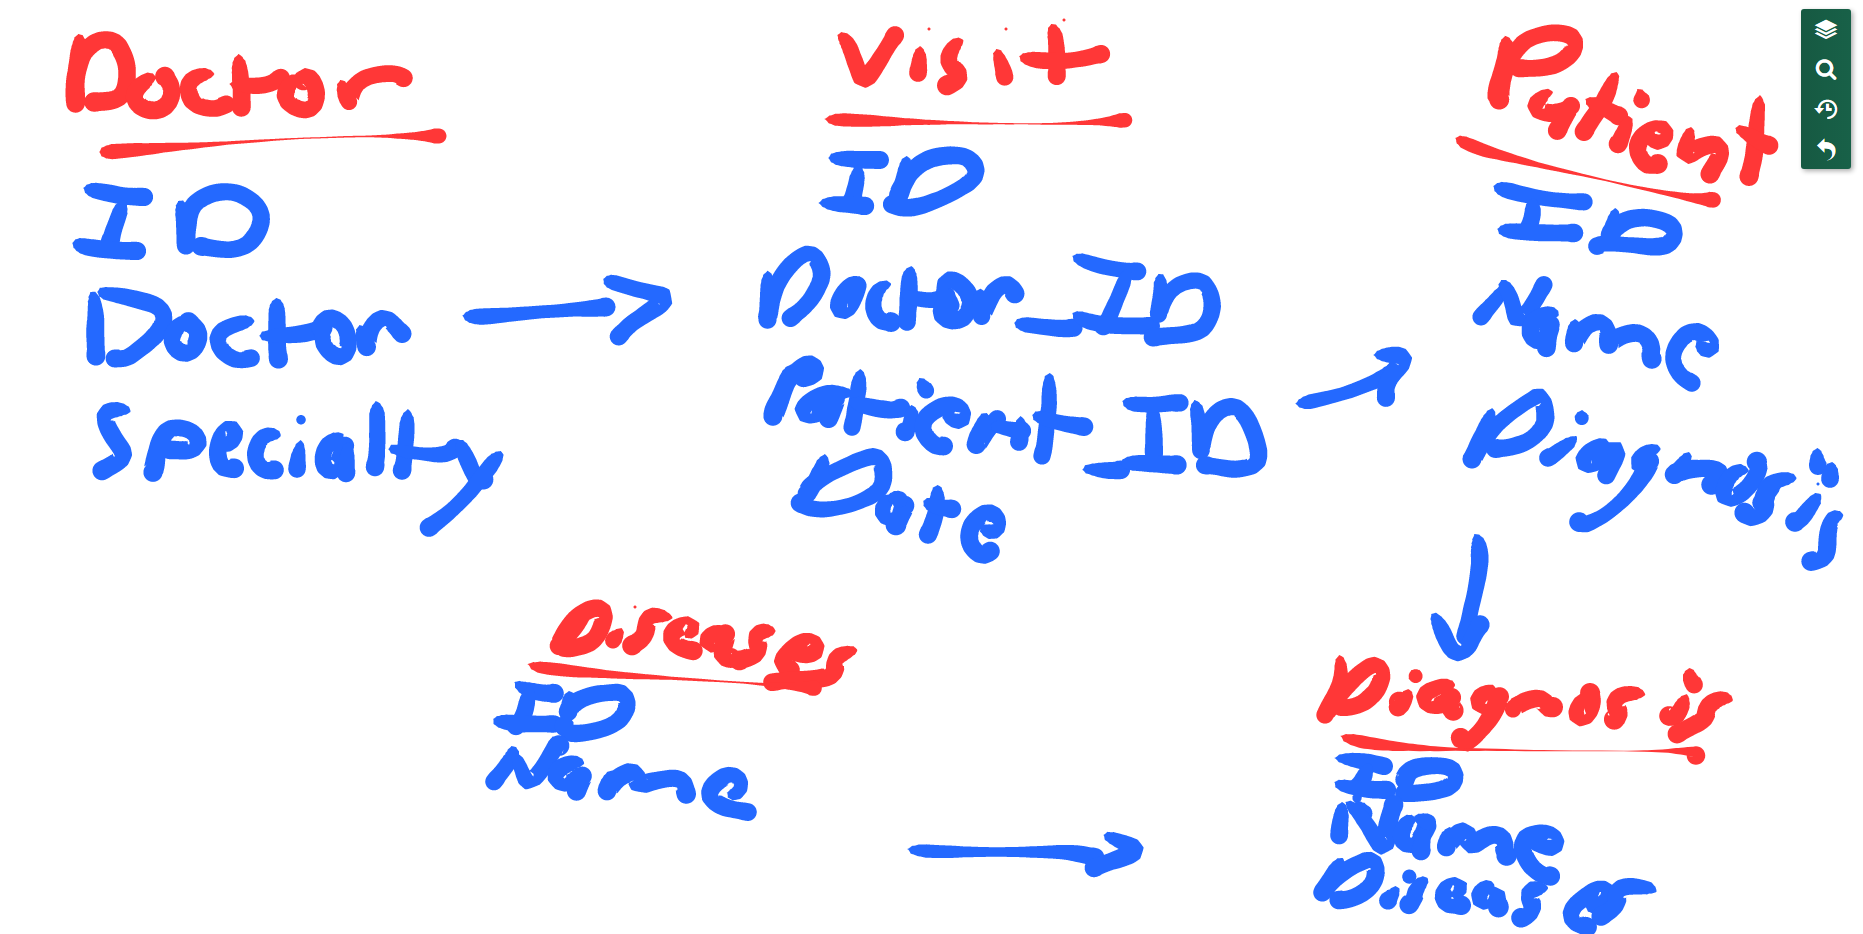 Doctor
ID
Doctor
Specialty
Visit
ID
Doctor_ID
Patient_ID
Date
Patient
ID
Name
Diagnosis
Diseases
ID
Name
Diagnosis
ID
Name
Diseases